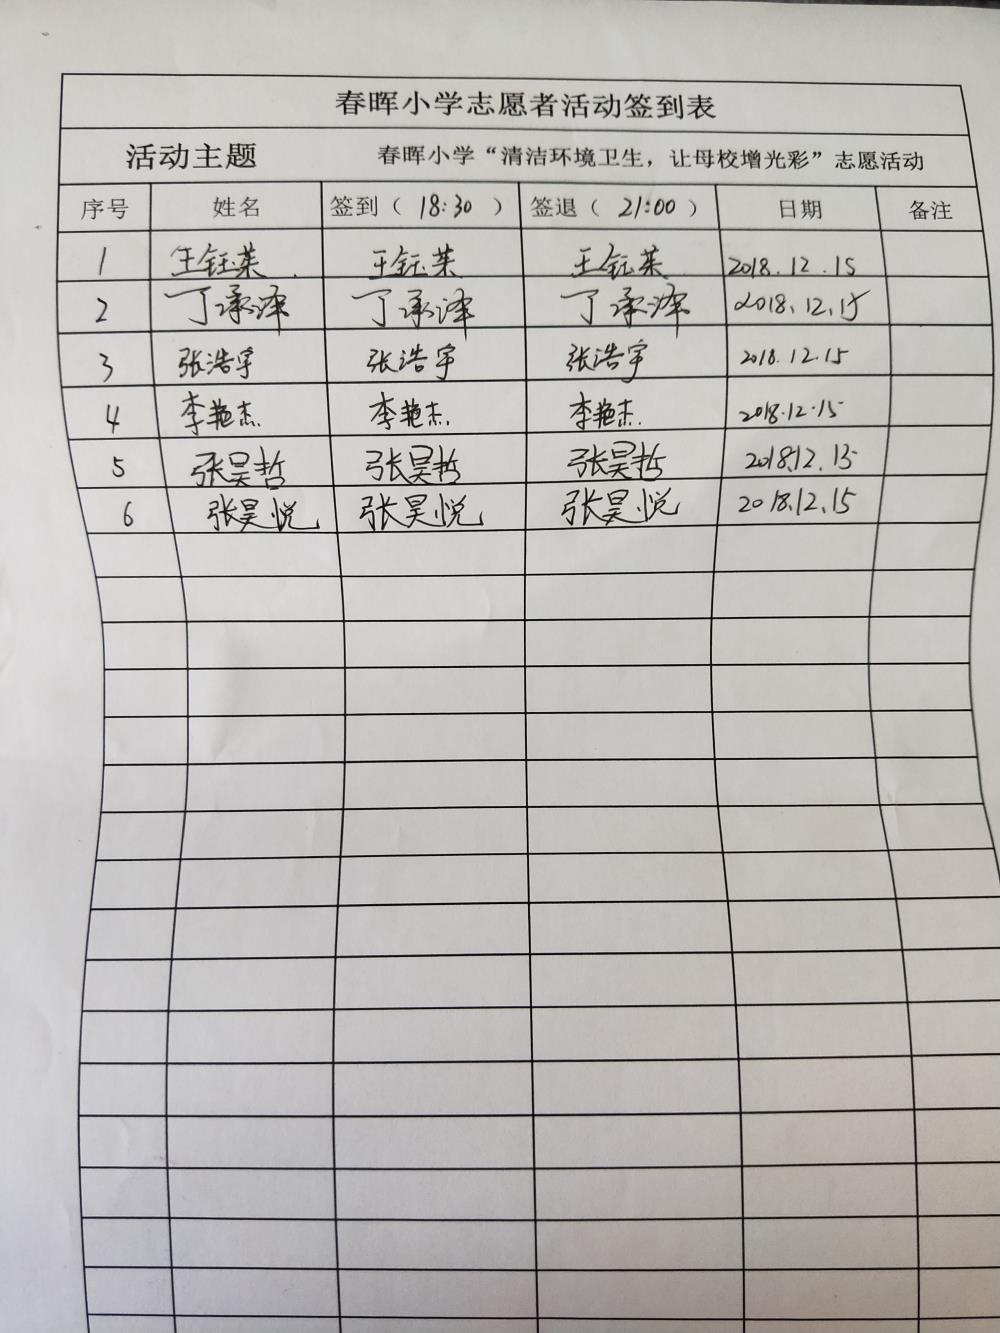 春晖小学志愿者活动签到表
活动主题 春晖小学“清洁环境卫生，让母校增光彩”志愿活动
序号 姓名 签到（ 18:30 ） 签退（ 21:00 ） 日期 备注
1 王钰莱 王钰莱 王钰莱 2018.12.15
2 丁承泽 丁承泽 丁承泽 2018.12.15
3 张浩宇 张浩宇 张浩宇 2018.12.15
4 李艳杰 李艳杰 李艳杰 2018.12.15
5 张昊哲 张昊哲 张昊哲 2018.12.15
6 张昊悦 张昊悦 张昊悦 2018.12.15